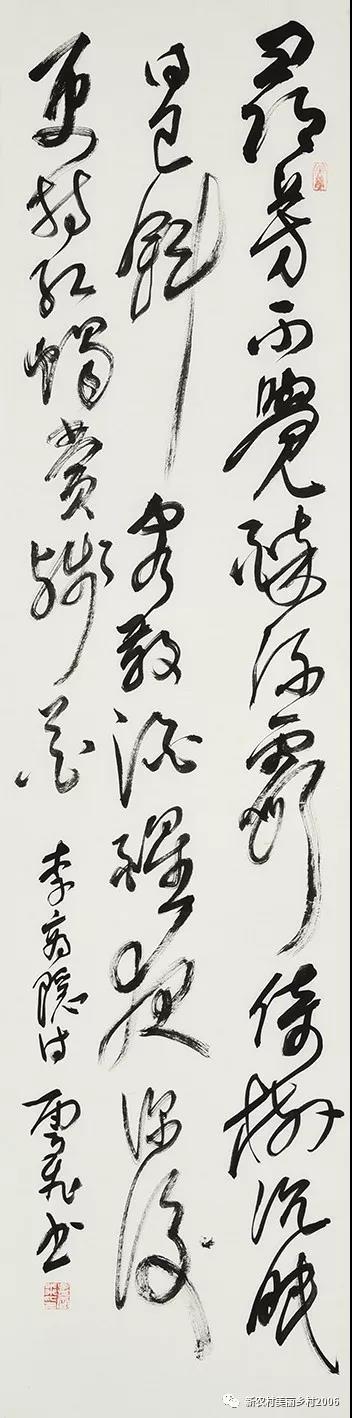 尋芳不覺醉流霞倚樹沉眠
日已斜客散酒醒夜深後
更持紅燭賞殘花 李商隱詩 雲飛书
新农村美丽乡村2006